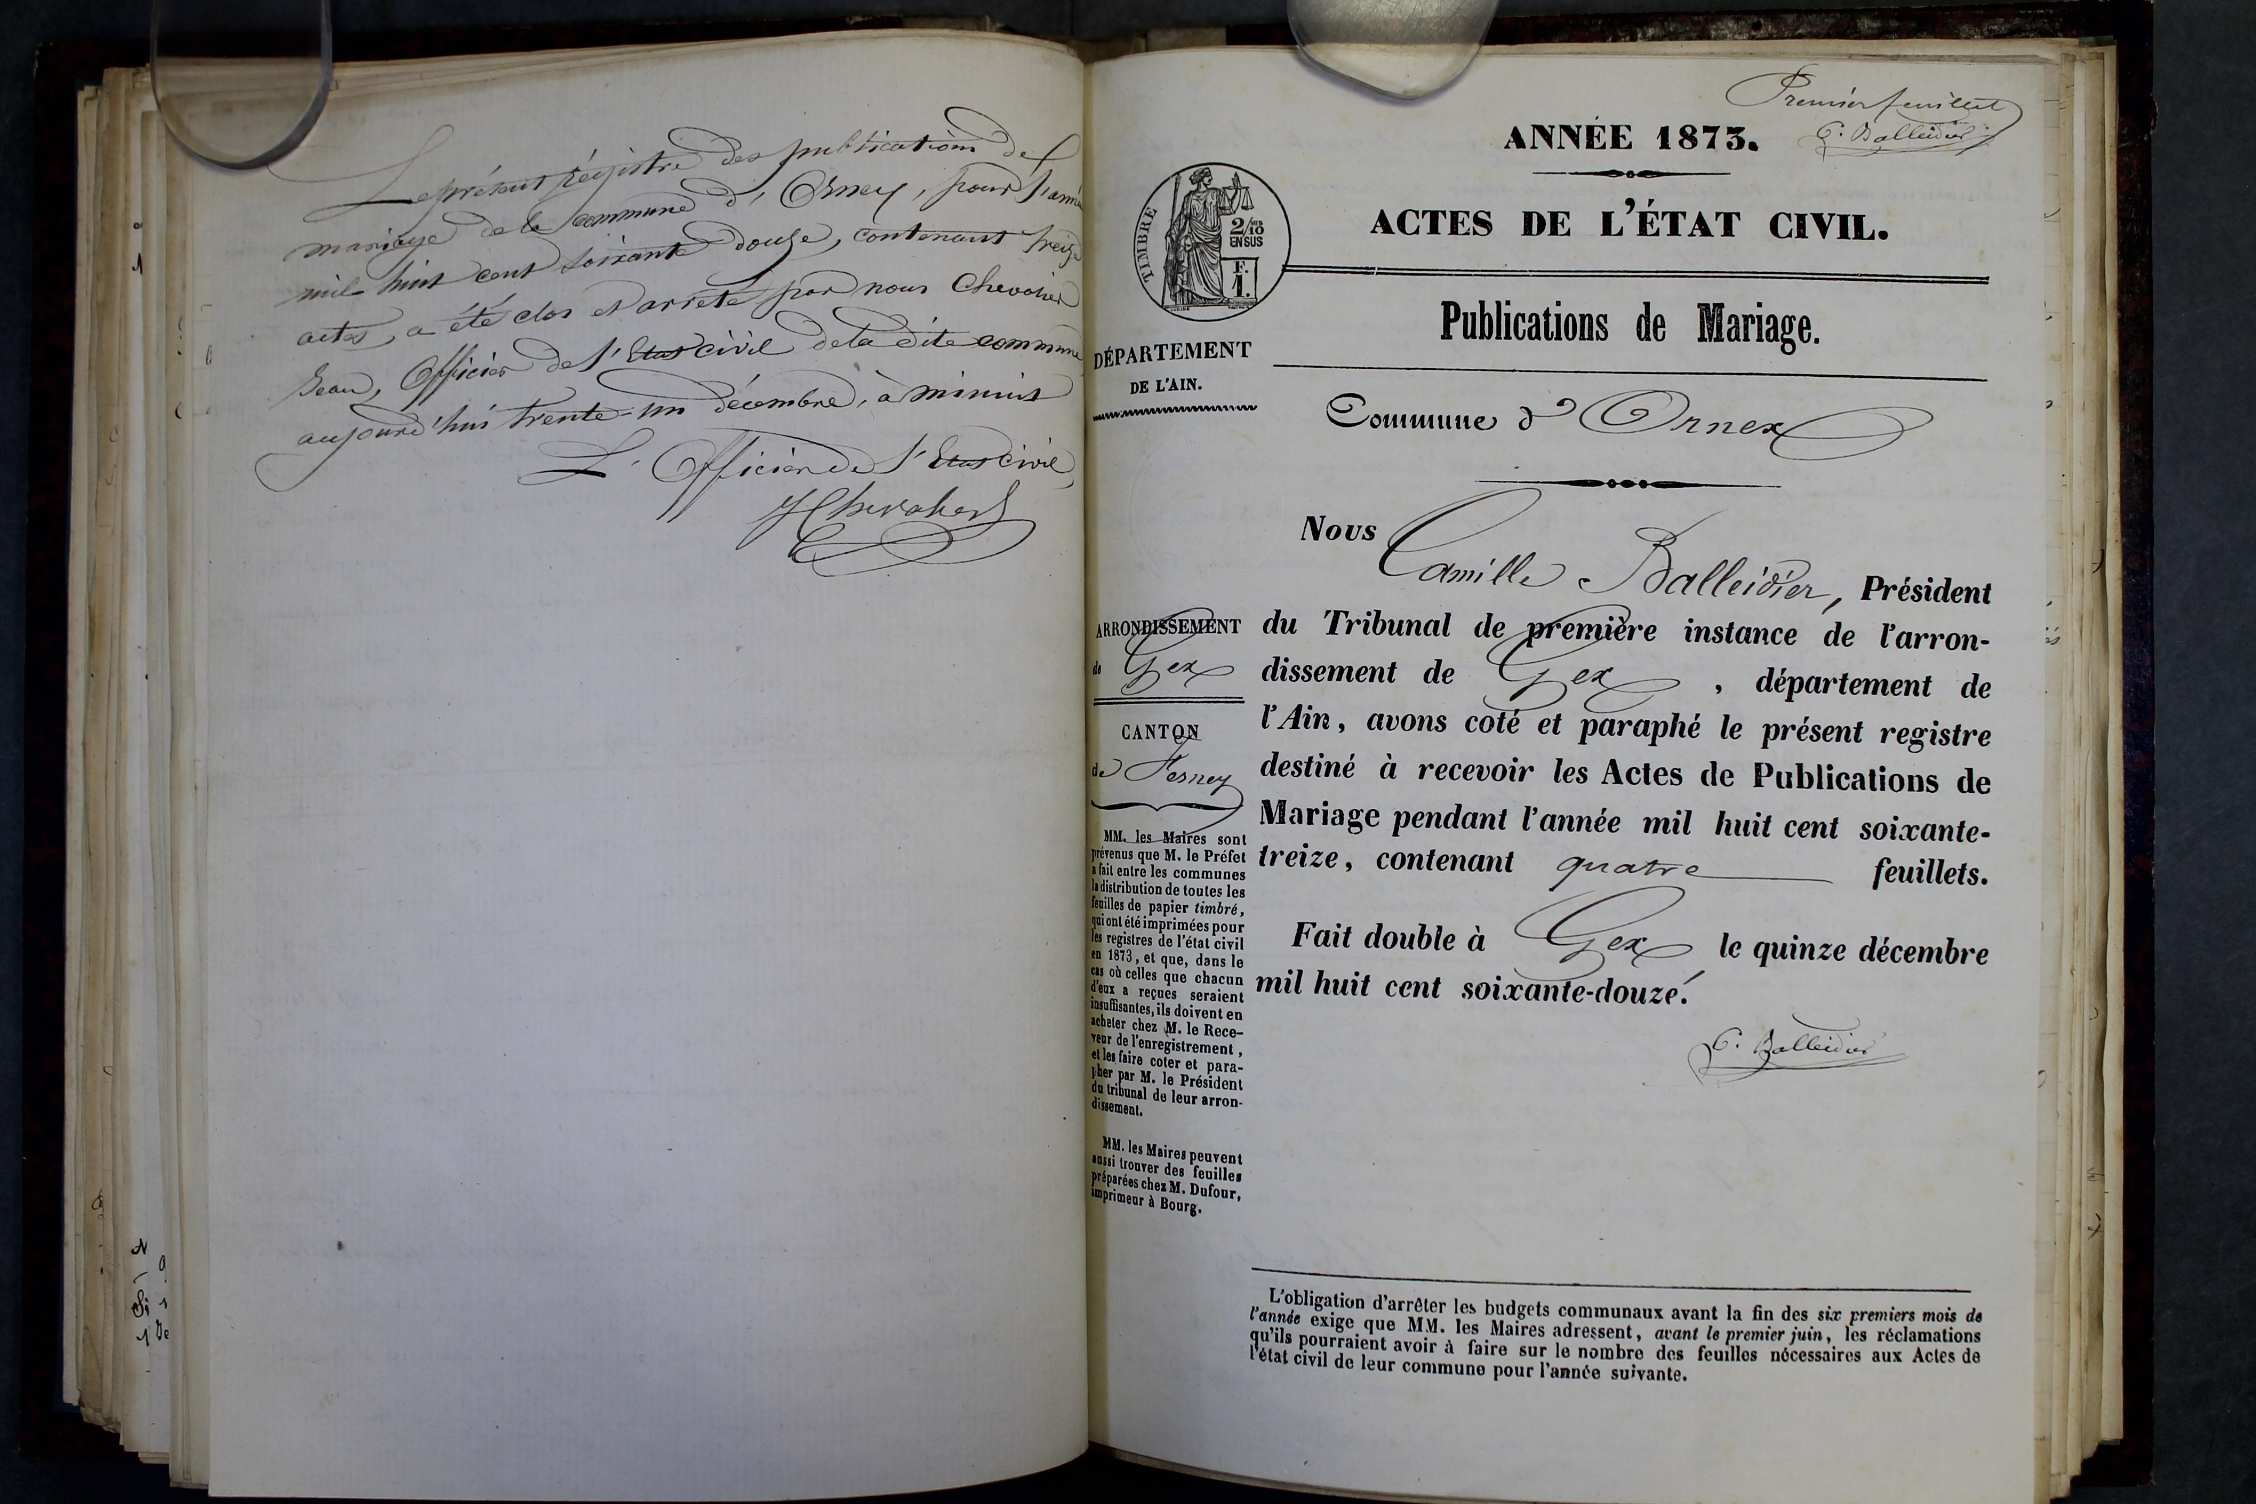 Le présent régistre des publications de
mariage de la commune d'Ornex, pour l'année
mil huit cent soixante douze, contenant treize
actes, a été clos et arrêté par nous Chevalier
Jean, Officier de l'Etat civil de la dite commune
aujourd'hui trente-un décembre, à minuit
L'Officier de l'Etat civil
J Chevalier
Premier feuillet
C. Balleidier
ANNÉE 1873.
ACTES DE L'ÉTAT CIVIL.
TIMBRE
2/10
EN SUS
F.
1.
Publications de Mariage.
DÉPARTEMENT
DE L'AIN.
Commune d'Ornex
Nous Camille Balleidier, Président
du Tribunal de première instance de l'arron-
dissement de Gex, département de
l'Ain, avons coté et paraphé le présent registre
destiné à recevoir les Actes de Publications de
Mariage pendant l'année mil huit cent soixante-
treize, contenant quatre feuillets.
Fait double à Gex le quinze décembre
mil huit cent soixante-douze.
C. Balleidier
ARRONDISSEMENT
de Gex
CANTON
de Ferney
MM. les Maires sont
prévenus que M. le Préfet
a fait entre les communes
la distribution de toutes les
feuilles de papier timbré,
qui ont été imprimées pour
les registres de l'état civil
en 1873, et que, dans le
cas où celles que chacun
d'eux a reçues seraient
insuffisantes, ils doivent en
acheter chez M. le Rece-
veur de l'enregistrement,
et les faire coter et para-
pher par M. le Président
du tribunal de leur arron-
dissement.
MM. les Maires peuvent
aussi trouver des feuilles
préparées chez M. Dufour,
imprimeur à Bourg.
L'obligation d'arrêter les budgets communaux avant la fin des six premiers mois de
l'année exige que MM. les Maires adressent, avant le premier juin, les réclamations
qu'ils pourraient avoir à faire sur le nombre des feuilles nécessaires aux Actes de
l'état civil de leur commune pour l'année suivante.